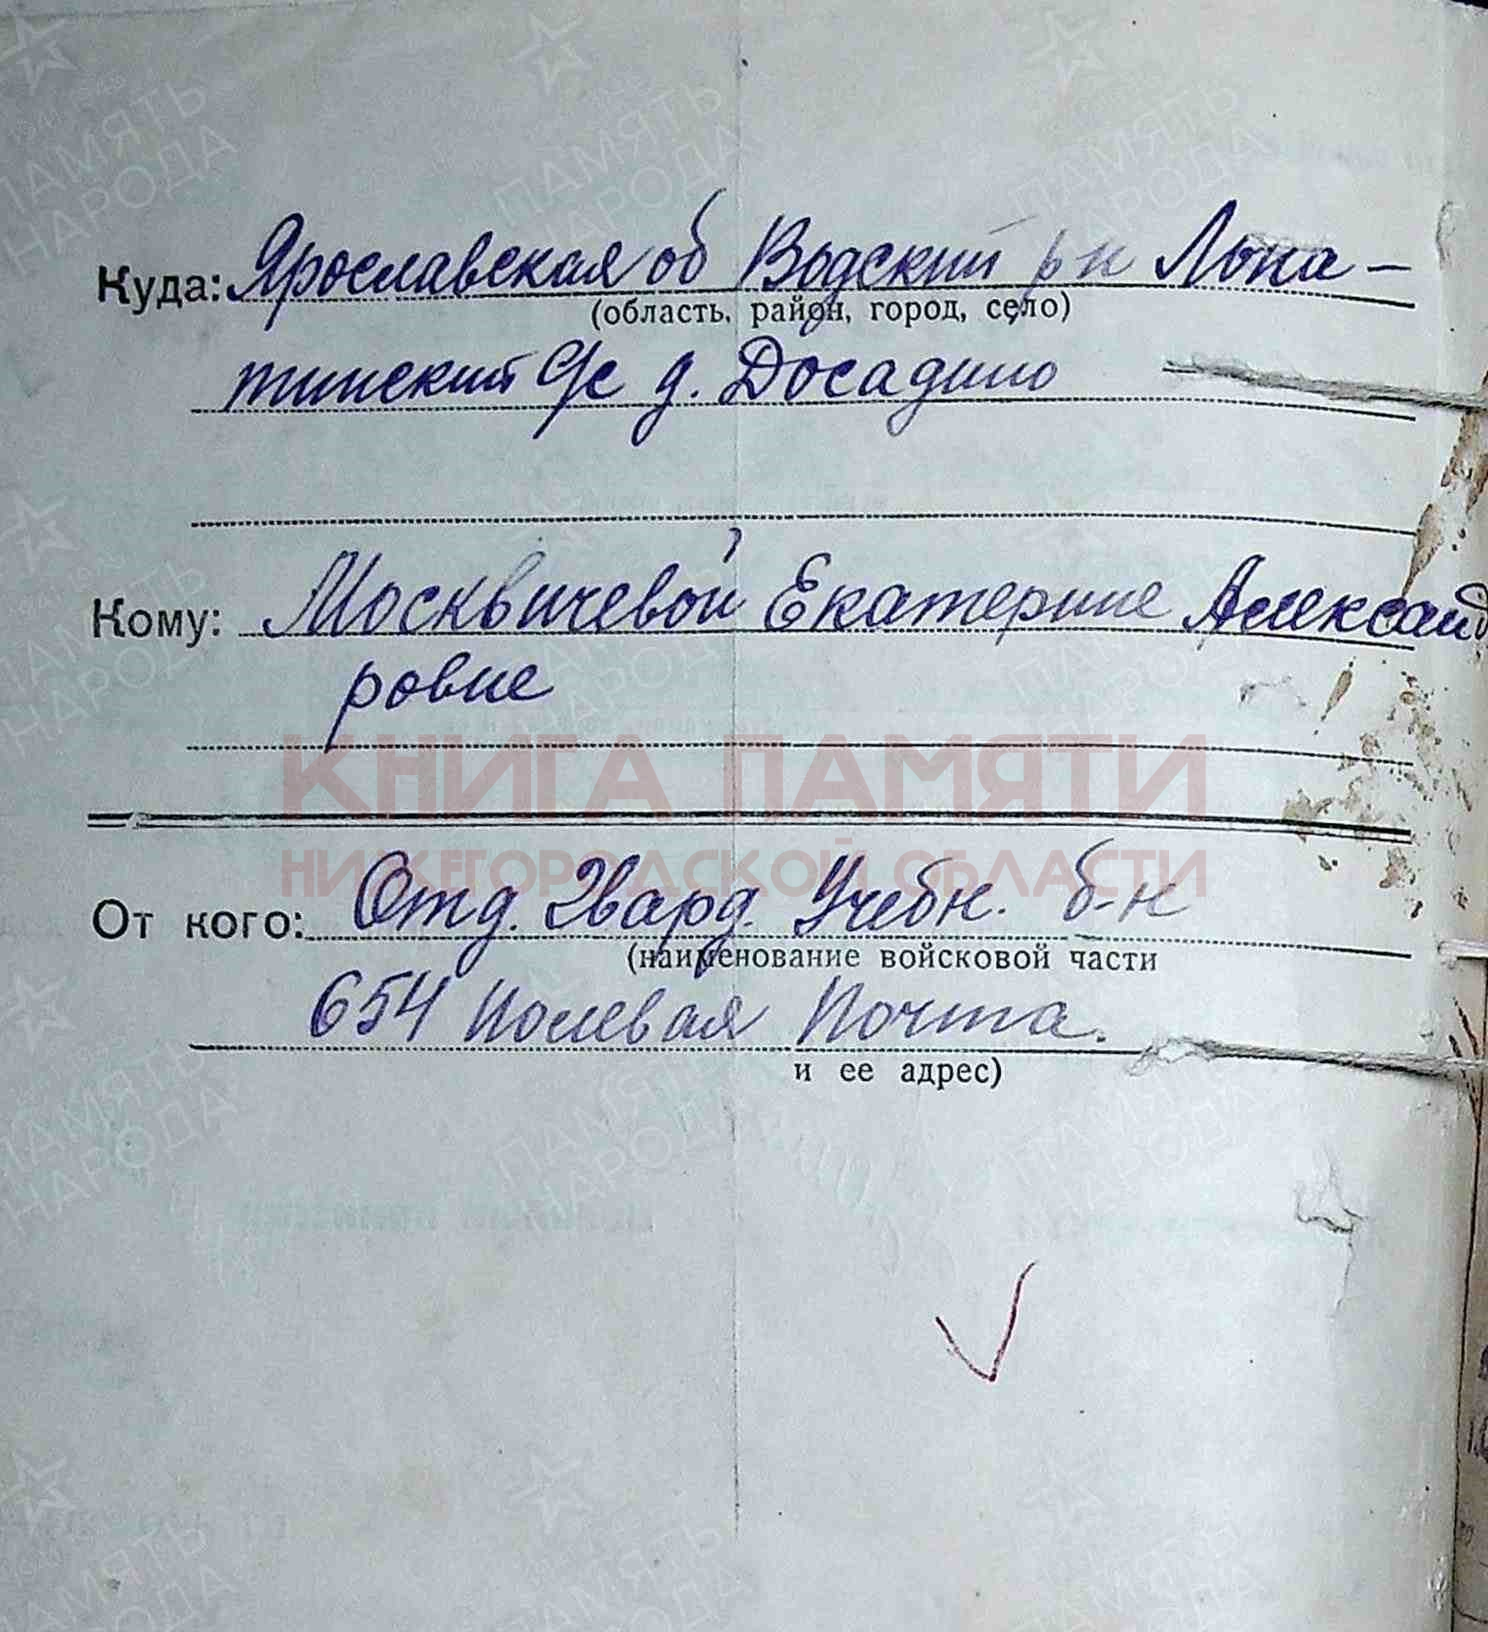 Куда: Ярославская об Водский р н Лопа-
(область, район, город, село)
тинский С/с д. Досадино
Кому: Москвичевой Екатерине Александ
ровне
КНИГА ПАМЯТИ
НИЖЕГОРОДСКОЙ ОБЛАСТИ
От кого: Отд. Гвард. Учебн. б-н
(наименование войсковой части
654 Полевая Почта.
и ее адрес)
ПАМЯТЬ
НАРОДА